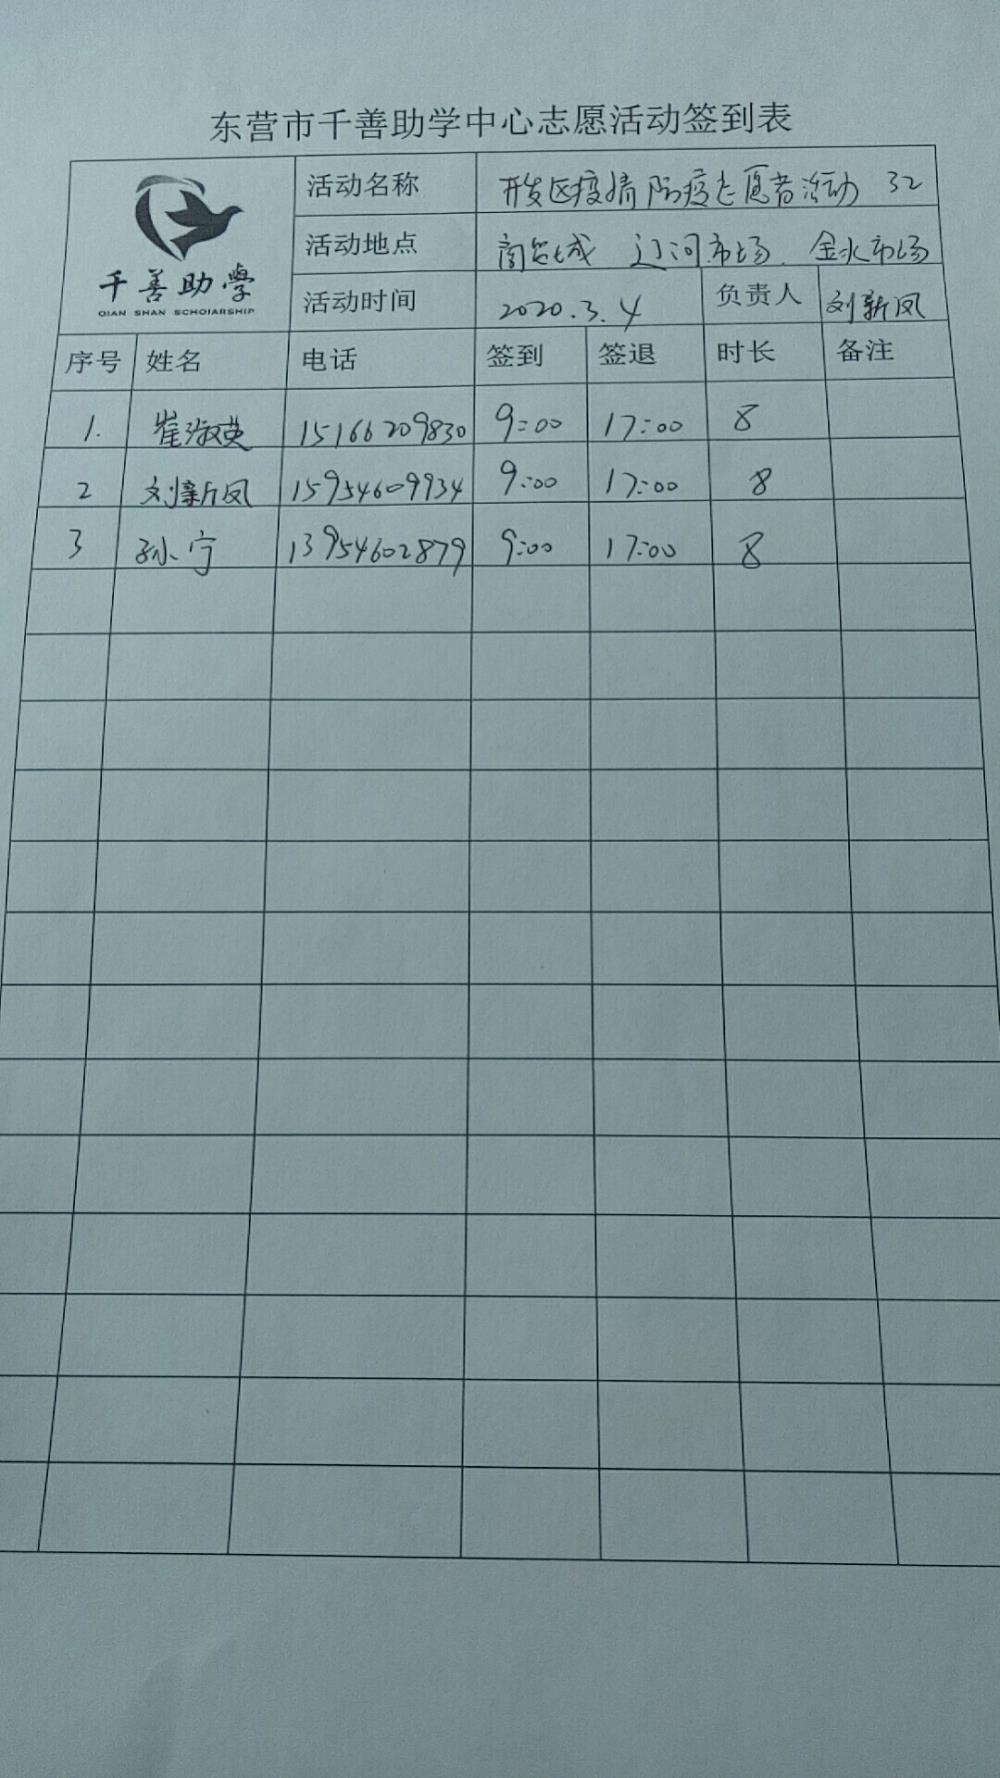 东营市千善助学中心志愿活动签到表
千善助學
QIAN SHAN SCHOIARSHIP
活动名称 开发区疫情防疫志愿者活动 32
活动地点 商贸城 辽河市场、金水市场
活动时间 2020.3.4 负责人 刘新凤
序号 姓名 电话 签到 签退 时长 备注
1. 崔淑英 15166209830 9:00 17:00 8
2 刘新凤 15954609934 9:00 17:00 8
3 孙宁 13954602879 9:00 17:00 8